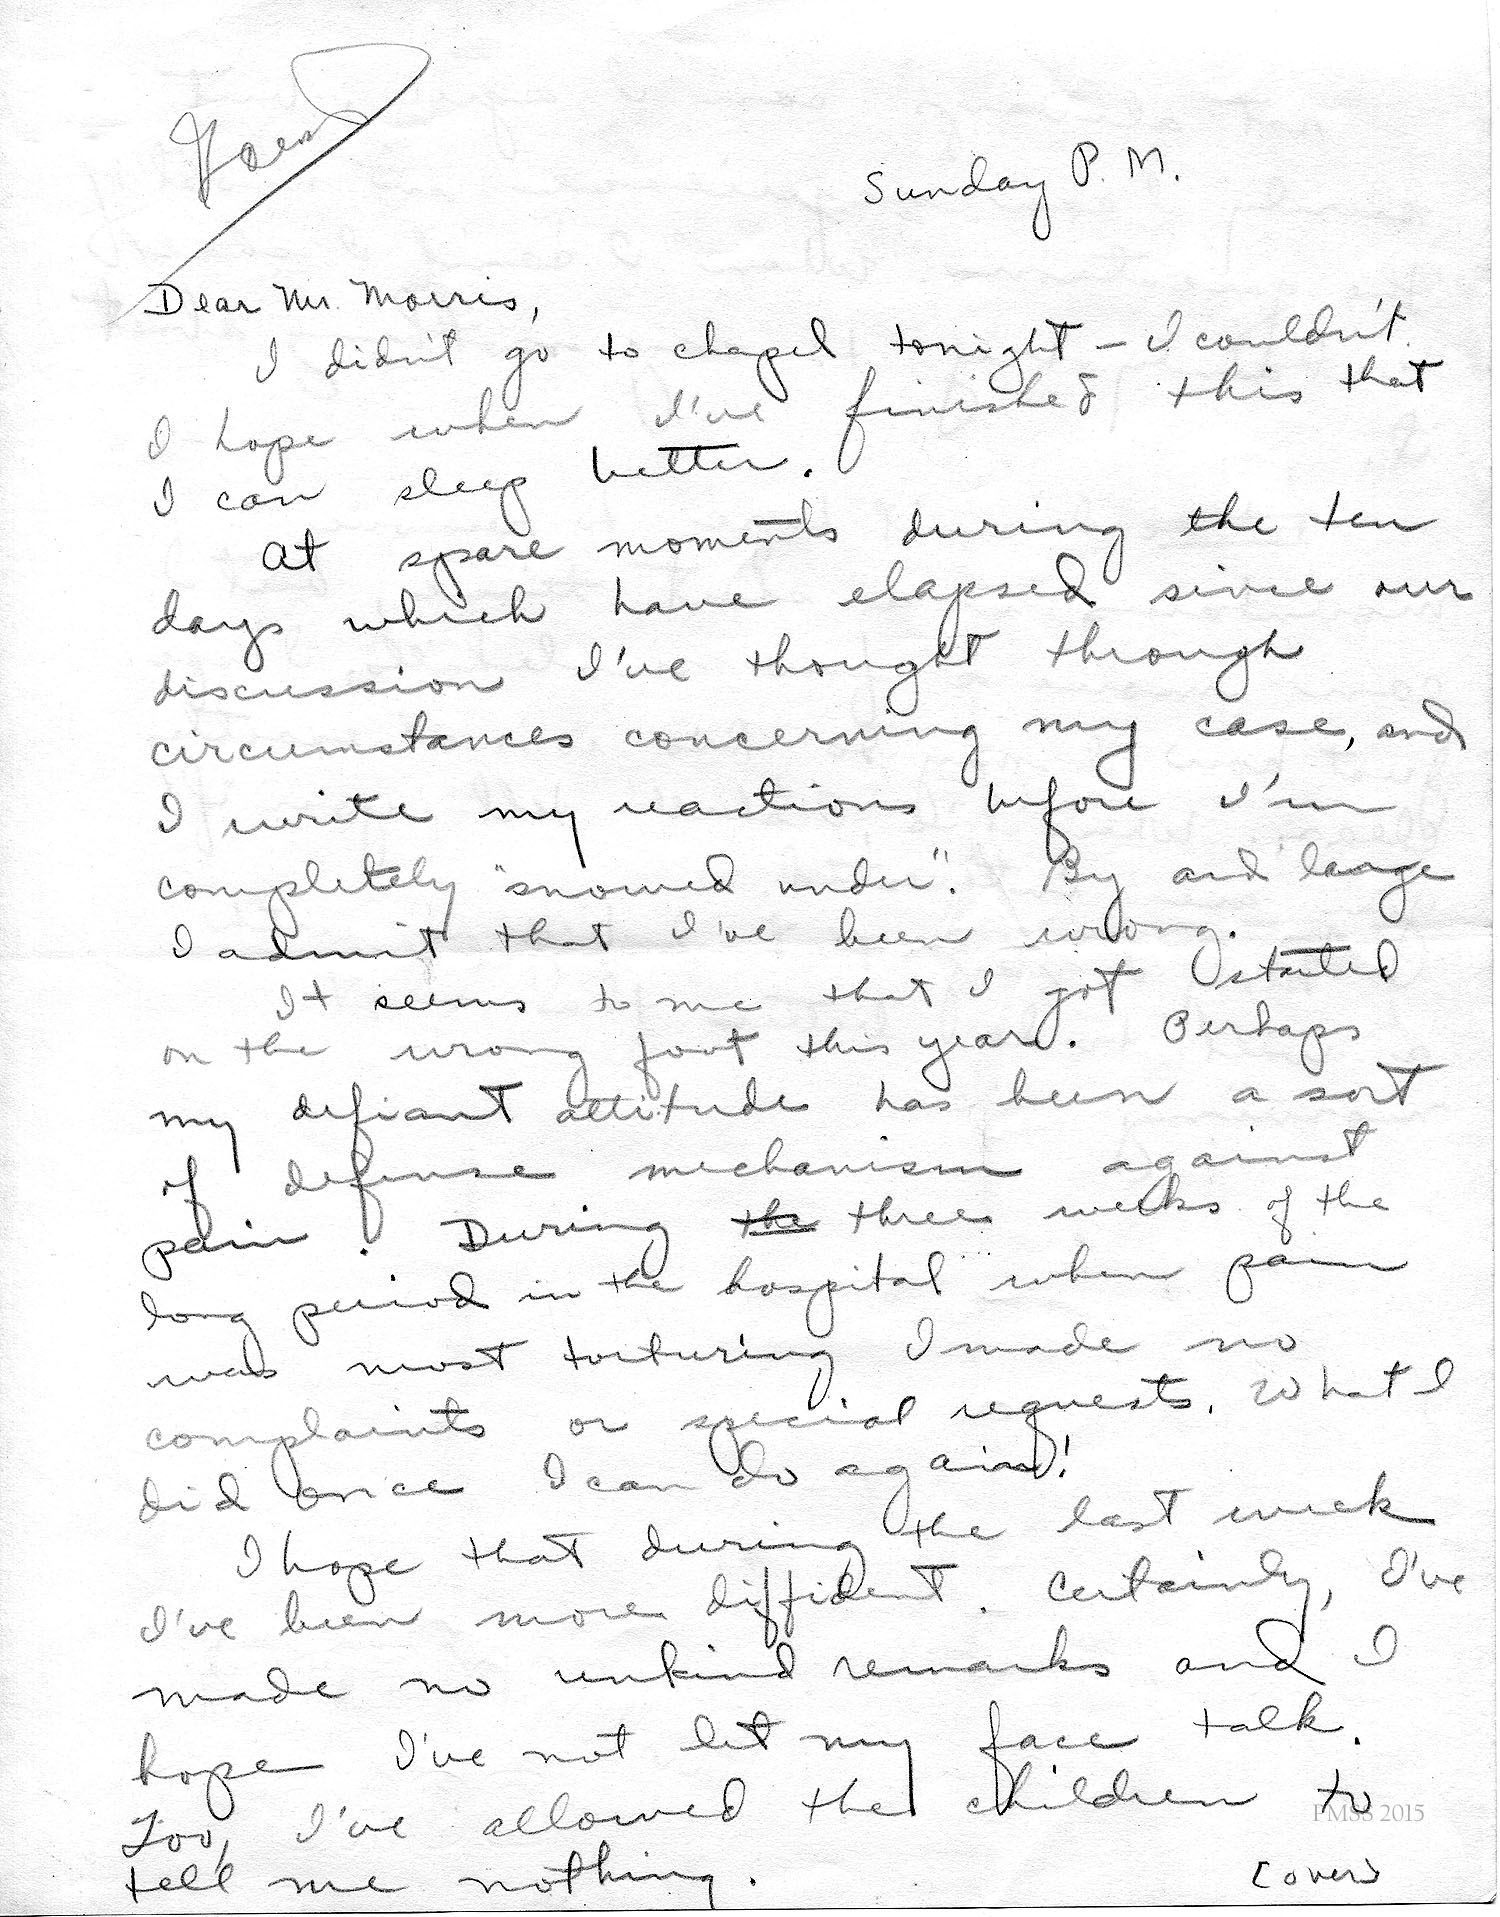 Sunday P. M.
Dear Mr. Morris,
I didn't go to chapel tonight — I couldn't.
I hope when I've finished this that
I can sleep better.
At spare moments during the ten
days which have elapsed since our
discussion I've thought through
circumstances concerning my case, and
I write my reactions before I'm
completely "snowed under". By and large
I admit that I've been wrong.
It seems to me that I got started
on the wrong foot this year. Perhaps
my defiant attitude has been a sort
of defense mechanism against
pain. During the three weeks of the
long period in the hospital when pain
was most torturing I made no
complaints or special requests. What I
did once I can do again!
I hope that during the last week
I've been more diffident. Certainly, I've
made no unkind remarks and I
hope I've not let my face talk.
Too, I've allowed the children to
tell me nothing.
(over)
PMSS 2015